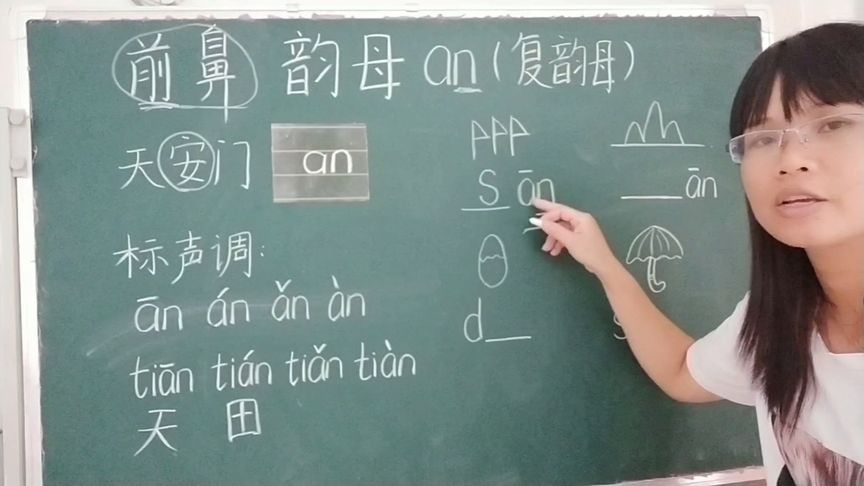 前鼻 韵母 an（复韵母）
天安门 an
标声调：
ān án ǎn àn
tiān tián tiǎn tiàn
天 田
S ān
ān
d
s